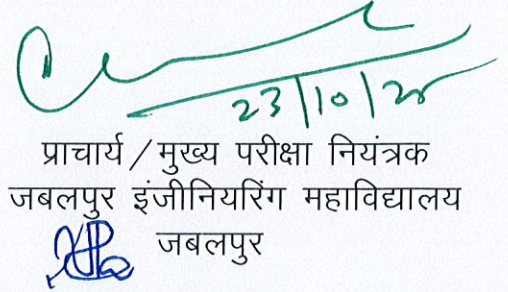 23/10/25
प्राचार्य / मुख्य परीक्षा नियंत्रक
जबलपुर इंजीनियरिंग महाविद्यालय
जबलपुर